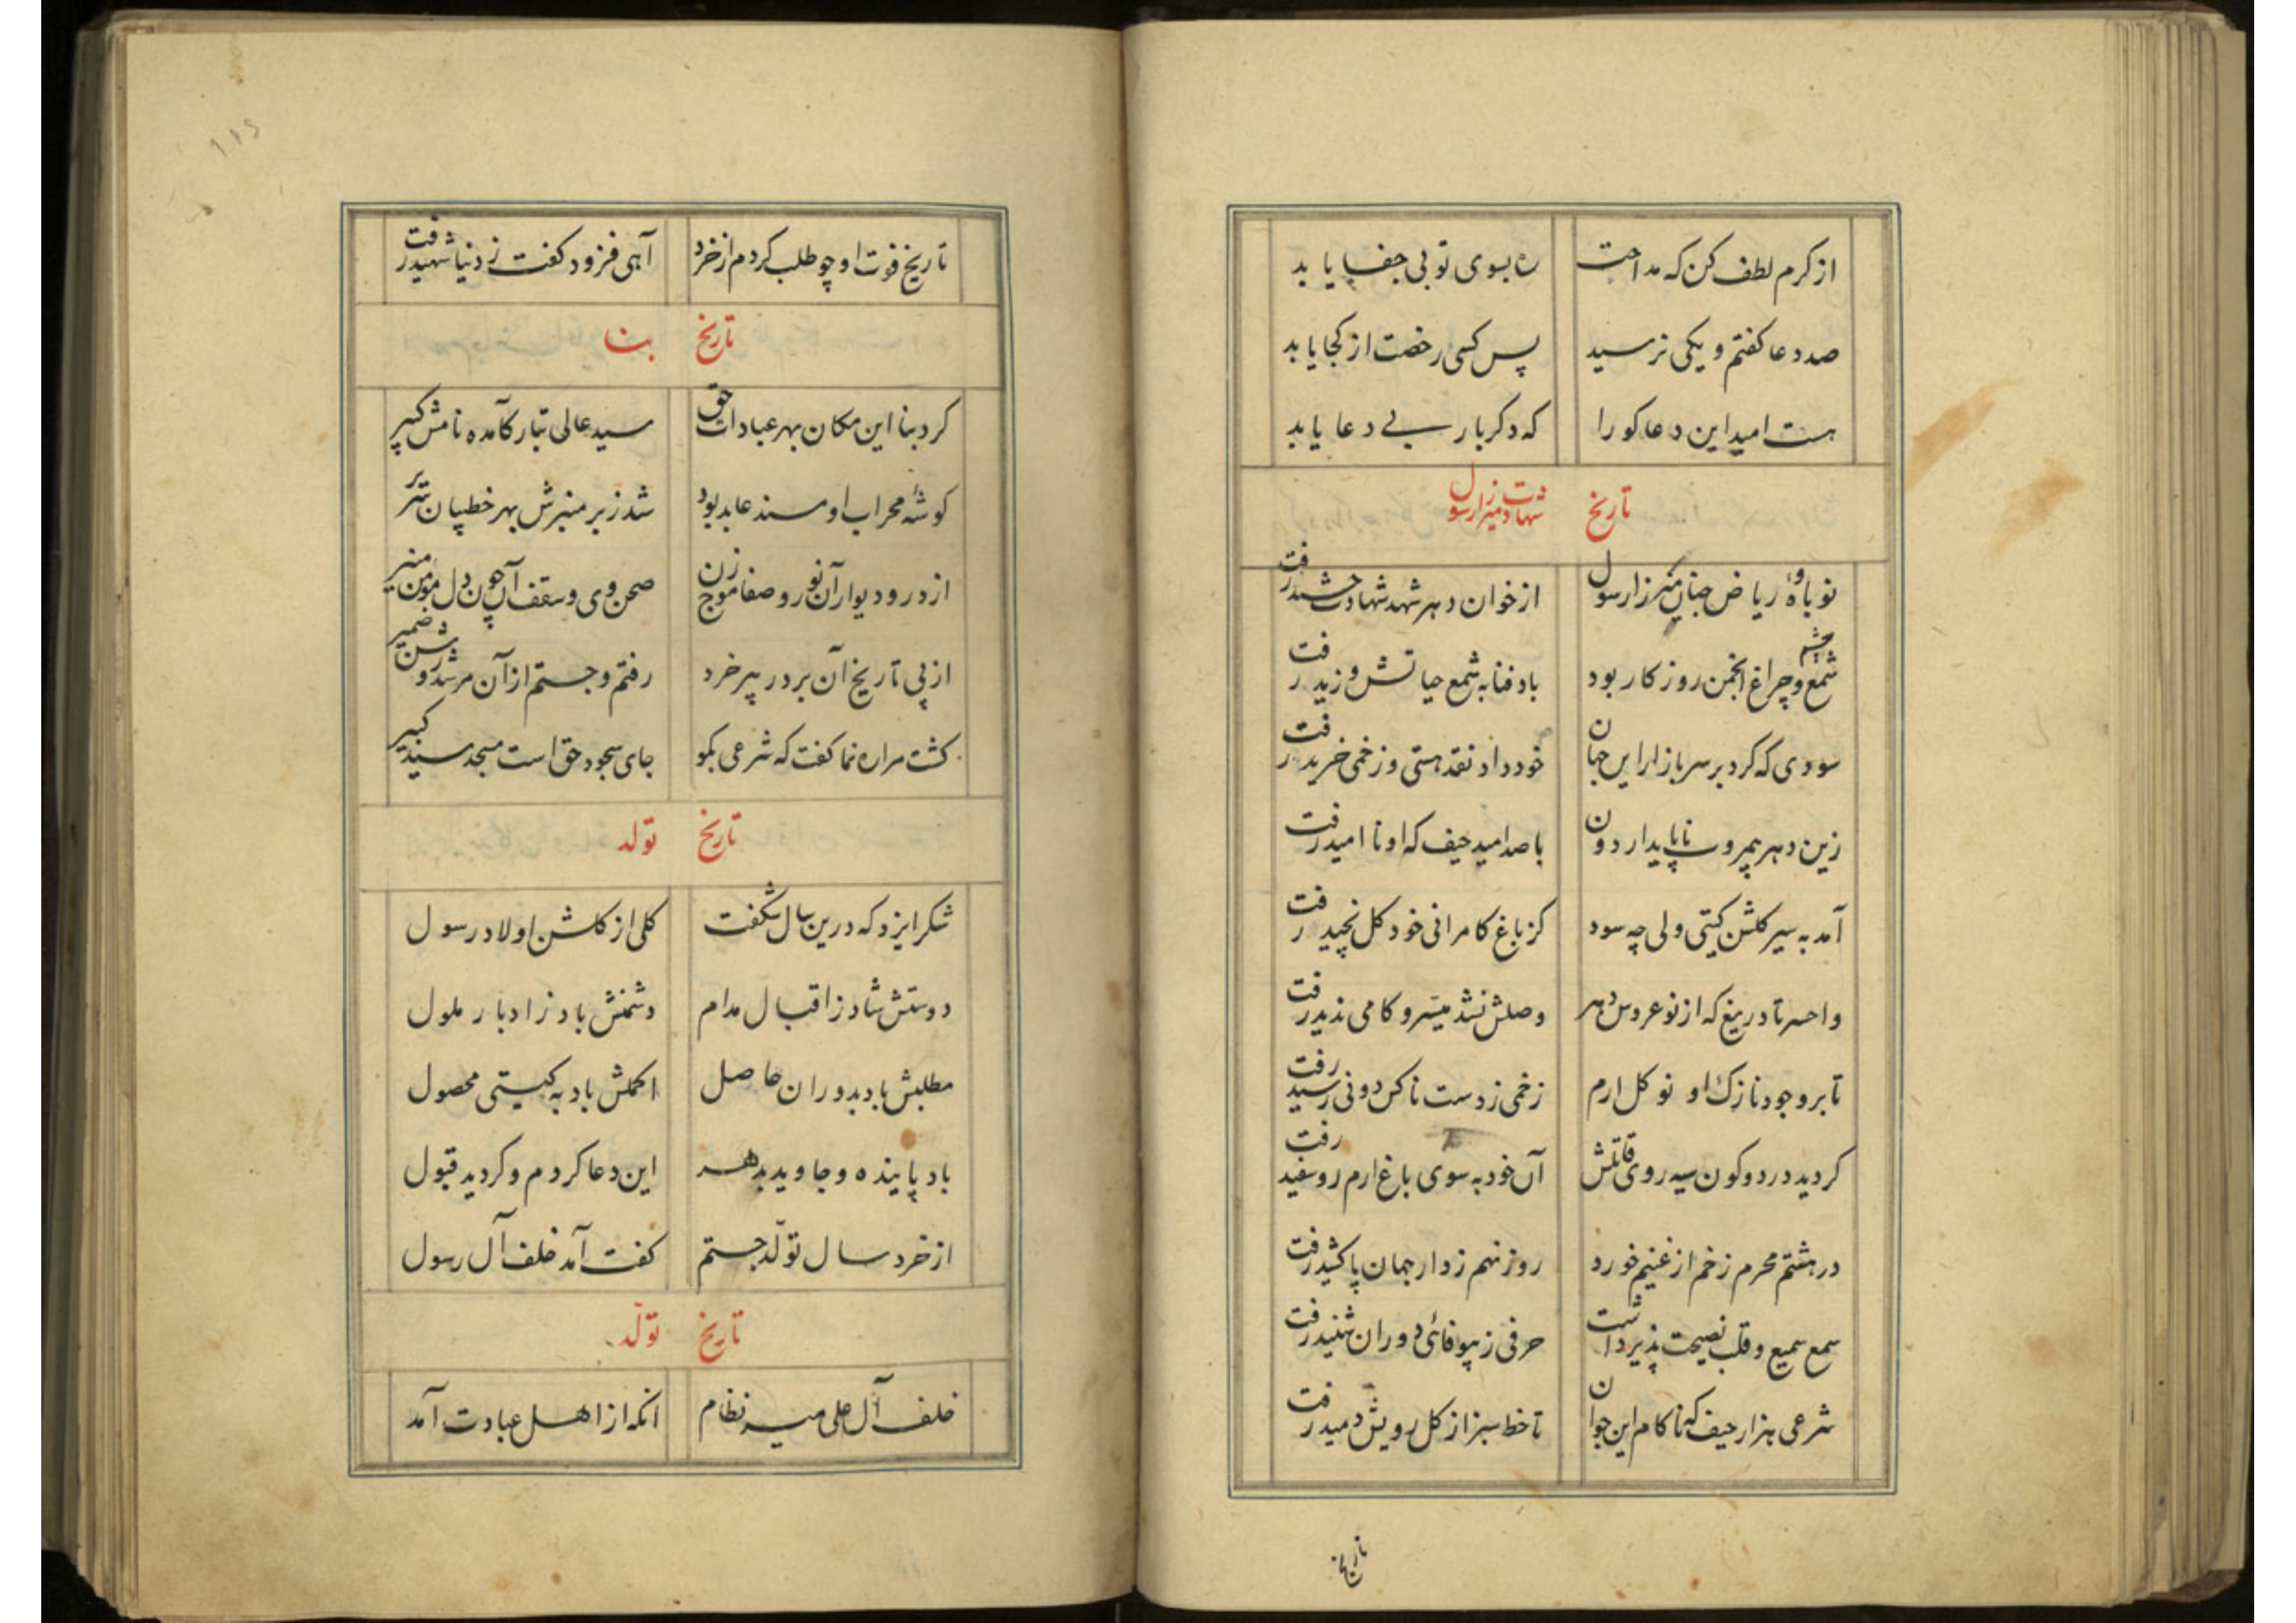 از کرم لطف کن که مداحت ره بسوی تو بی جفا یابد
صد دعا گفتم و یکی نرسید پس کسی رخصت از کجا یابد
هست امید این دعا کو را که دکر بار بے دعا یابد
تاریخ شهادت میرزا رسول
نوباوهٔ ریاض جنان میرزا رسول از خوان دهر شهد شهادت چشید رفت
شمع و چراغ انجمن روزکار بود باد فنا به شمع حیاتش وزید رفت
سودی که کرد بر سر بازار این جهان خود داد نقد هستی و زخمی خرید رفت
زین دهر بیمروت ناپایدار دون با صد امید حیف که او ناامید رفت
آمد به سیر کلشن کیتی ولی چه سود کز باغ کامرانی خود کل نچید رفت
واحسرتا دریغ که از نوعروس دهر وصلش نشد میسّر و کامی ندید رفت
تا بر وجود نازک او نو کل ارم زخمی ز دست ناکس دونی رسید رفت
کردید در دو کون سیه روی قاتلش آن خود به سوی باغ ارم رو سفید رفت
در هشتم محرم زخم از غنیم خورد روز نهم ز دار جهان پا کشید رفت
سمع سمیع و قلب نصیحت پذیر داشت حرفی ز بیوفائی دوران شنید رفت
شرعی هزار حیف که ناکام این جوان تا خط سبز از کل رویش دمید رفت
تاریخ
تاریخ فوت او چو طلب کردم از خرد آهی فزود کفت ز دنیا شهید رفت
تاریخ بنا
کرد بنا این مکان بهر عبادات حق سید عالی تبار کآمده نامش کبیر
کوشهٔ محراب او مسند عابد بود شد زبر منبرش بهر خطیبان
از در و دیوار آن نور و صفا موج زن صحن وی و سقف آن چون دل مؤمن منیر
از پی تاریخ آن بر در پیر خرد رفتم و جستم از آن مرشد روشن ضمیر
کشت مرا ره نما کفت که شرعی بکو جای سجود حق است مسجد سید کبیر
تاریخ تولد
شکر ایزد که درین سال شکفت کلی از کلشن اولاد رسول
دوستش شاد ز اقبال مدام دشمنش باد ز ادبار ملول
مطلبش باد بدوران حاصل اکملش باد به کیتی محصول
باد پاینده و جاوید بدهر این دعا کردم و کردید قبول
از خرد سال تولّد جستم کفت آمد خلف آل رسول
تاریخ تولّد
خلف آل علی میر نظام انکه از اهل عبادت آمد